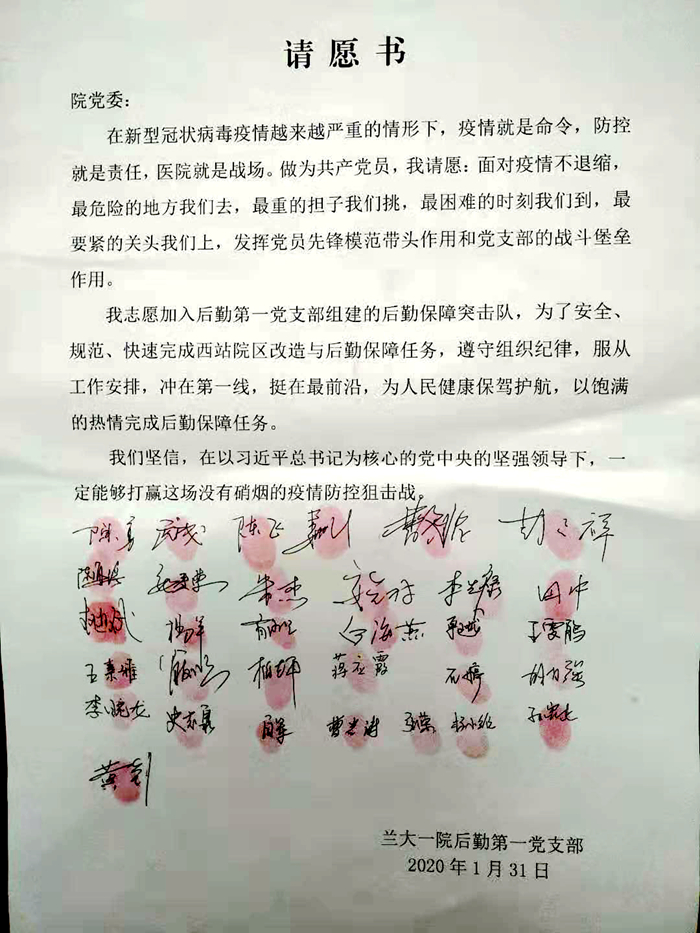 请愿书
院党委：
在新型冠状病毒疫情越来越严重的情形下，疫情就是命令，防控
就是责任，医院就是战场。做为共产党员，我请愿：面对疫情不退缩，
最危险的地方我们去，最重的担子我们挑，最困难的时刻我们到，最
要紧的关头我们上，发挥党员先锋模范带头作用和党支部的战斗堡垒
作用。
我志愿加入后勤第一党支部组建的后勤保障突击队，为了安全、
规范、快速完成西站院区改造与后勤保障任务，遵守组织纪律，服从
工作安排，冲在第一线，挺在最前沿，为人民健康保驾护航，以饱满
的热情完成后勤保障任务。
我们坚信，在以习近平总书记为核心的党中央的坚强领导下，一
定能够打赢这场没有硝烟的疫情防控狙击战。
陈飞
朱杰 田中
杨军 王雯鹃
蒋应霞 石婷
李晓龙
兰大一院后勤第一党支部
2020年1月31日